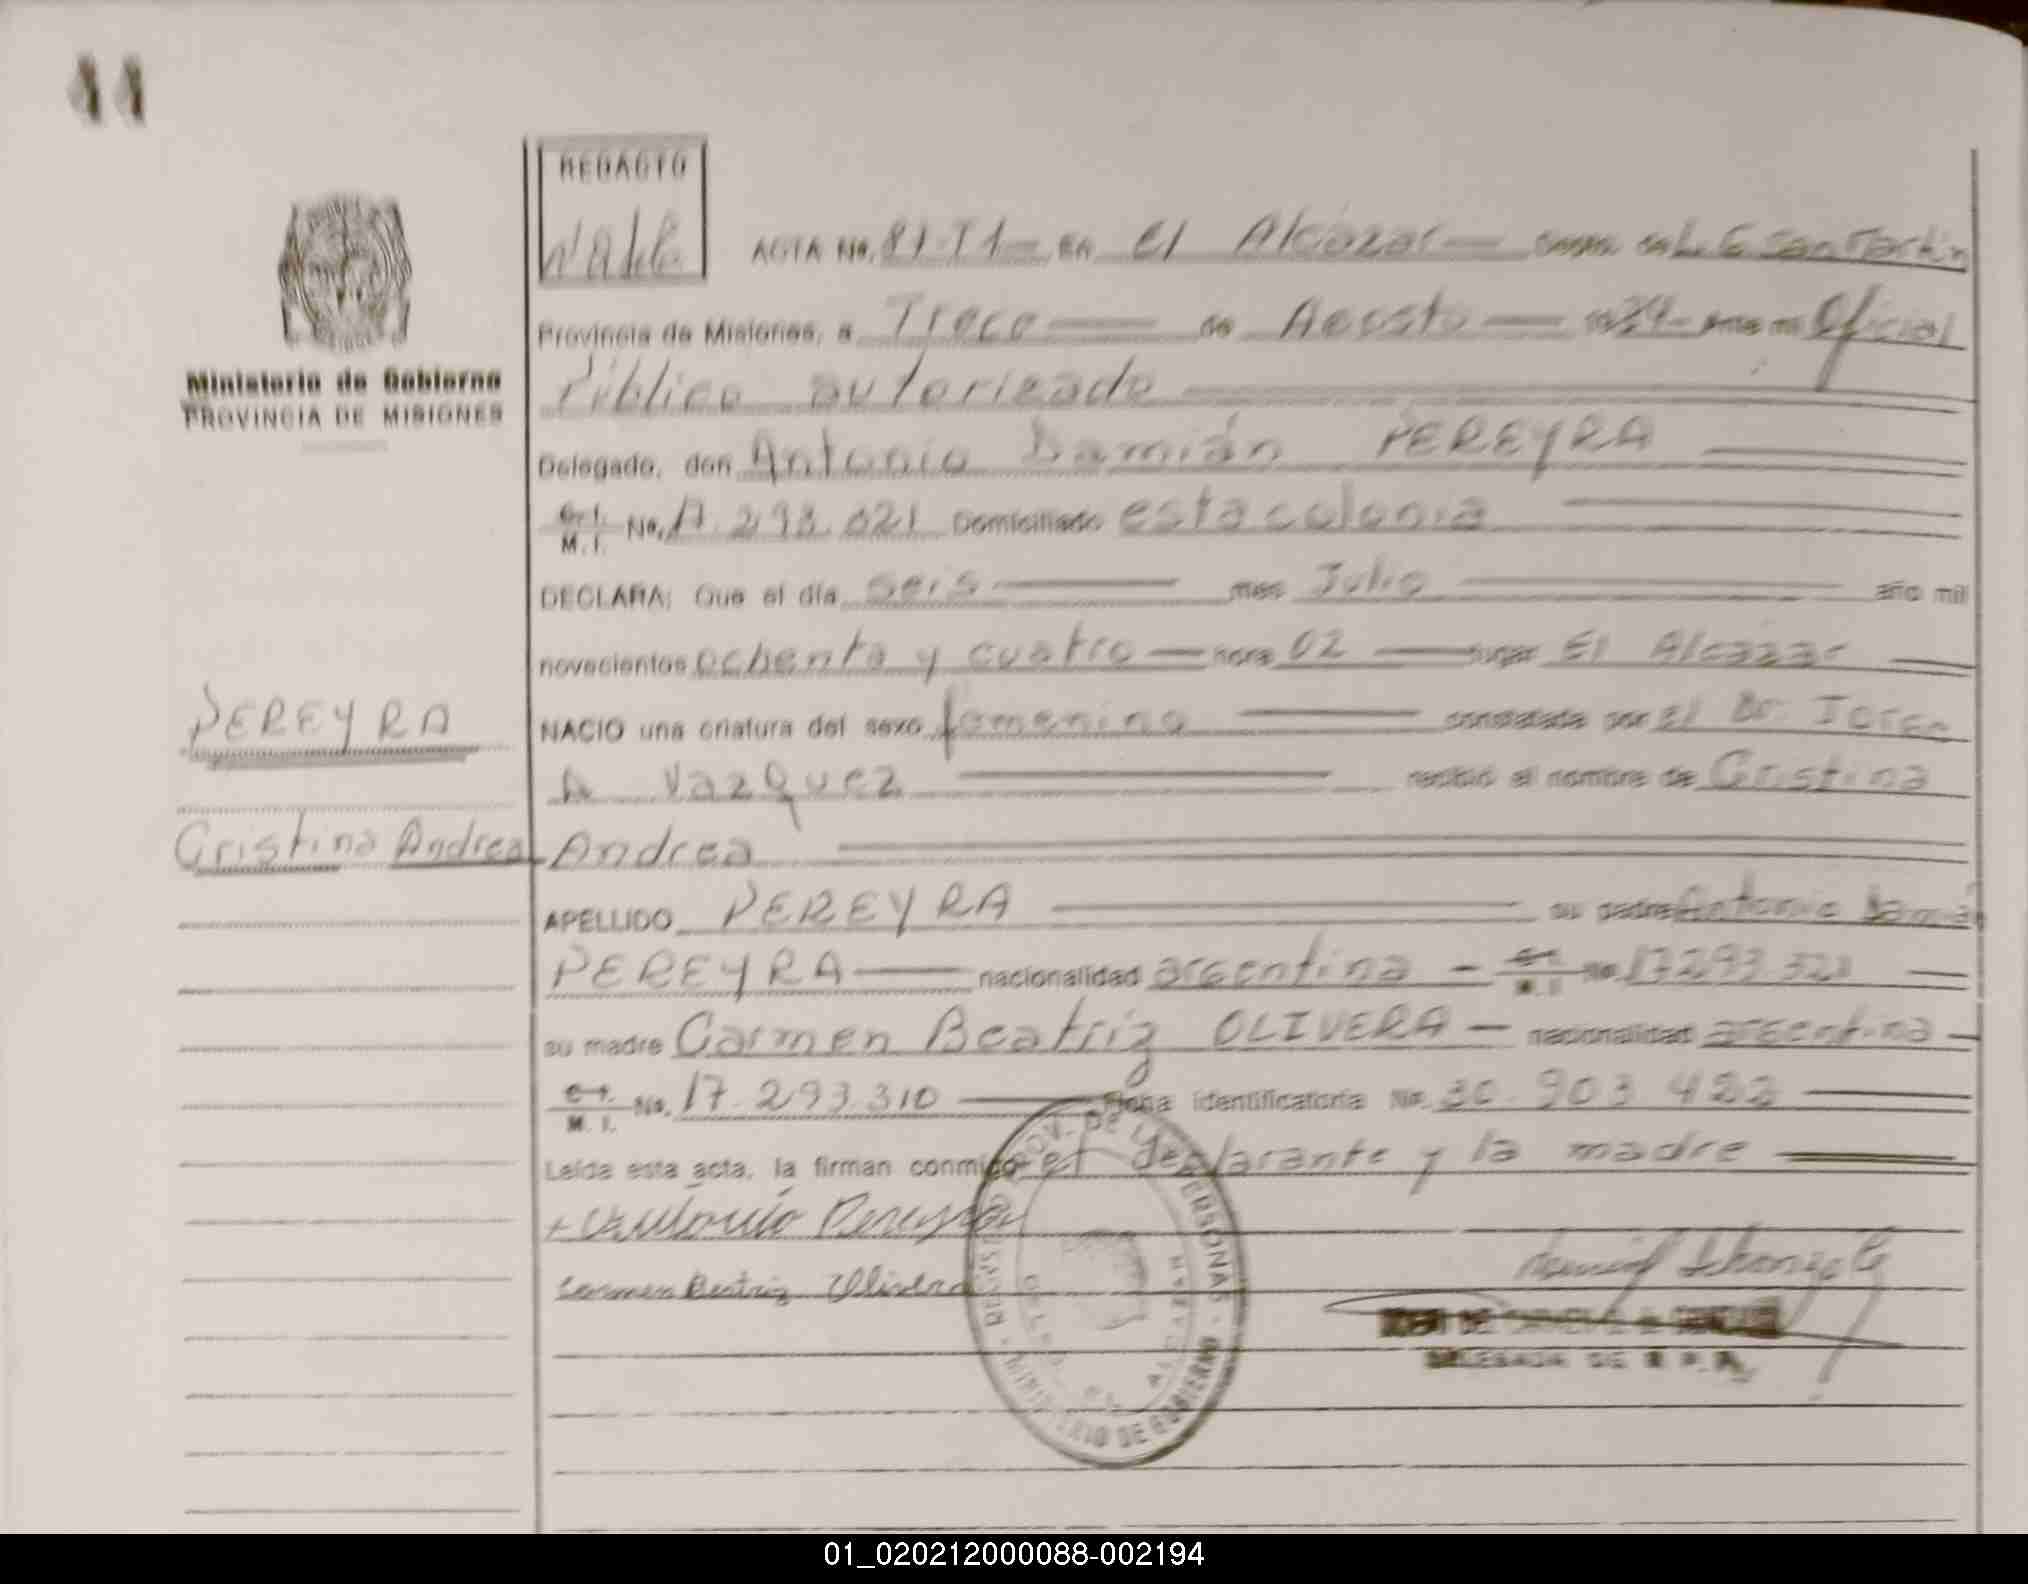 11
REDACTO
ACTA No. 81-T1 — EN El Alcázar — L G San Martin
Provincia de Misiones, a Trece — de Agosto — 1984 ante mi Oficial
Público autorizado
Ministerio de Gobierno
PROVINCIA DE MISIONES
Delegado, don Antonio Damián PEREYRA
M. I. No. Domiciliado esta colonia
DECLARA: Que el día seis — mes Julio — año mil
novecientos ochenta y cuatro — hora 02 — lugar El Alcázar —
PEREYRA
NACIO una criatura del sexo femenino — constatada por el Dr. Jorge
A Vazquez — recibió el nombre de Cristina
Cristina Andrea
Andrea
APELLIDO PEREYRA — su padre Antonio Damián
PEREYRA — nacionalidad argentina — M. I. No
su madre Carmen Beatriz OLIVERA — nacionalidad argentina —
M. I. No. 17.293.310 — Ficha identificatoria No. 30.903.422
Leída esta acta, la firman conmigo el declarante y la madre
Antonio Pereyra
Carmen Beatriz Olivera
DELEGADA DE R.P.
PROV. DE LAS PERSONAS - MINISTERIO DE GOBIERNO
01_020212000088-002194